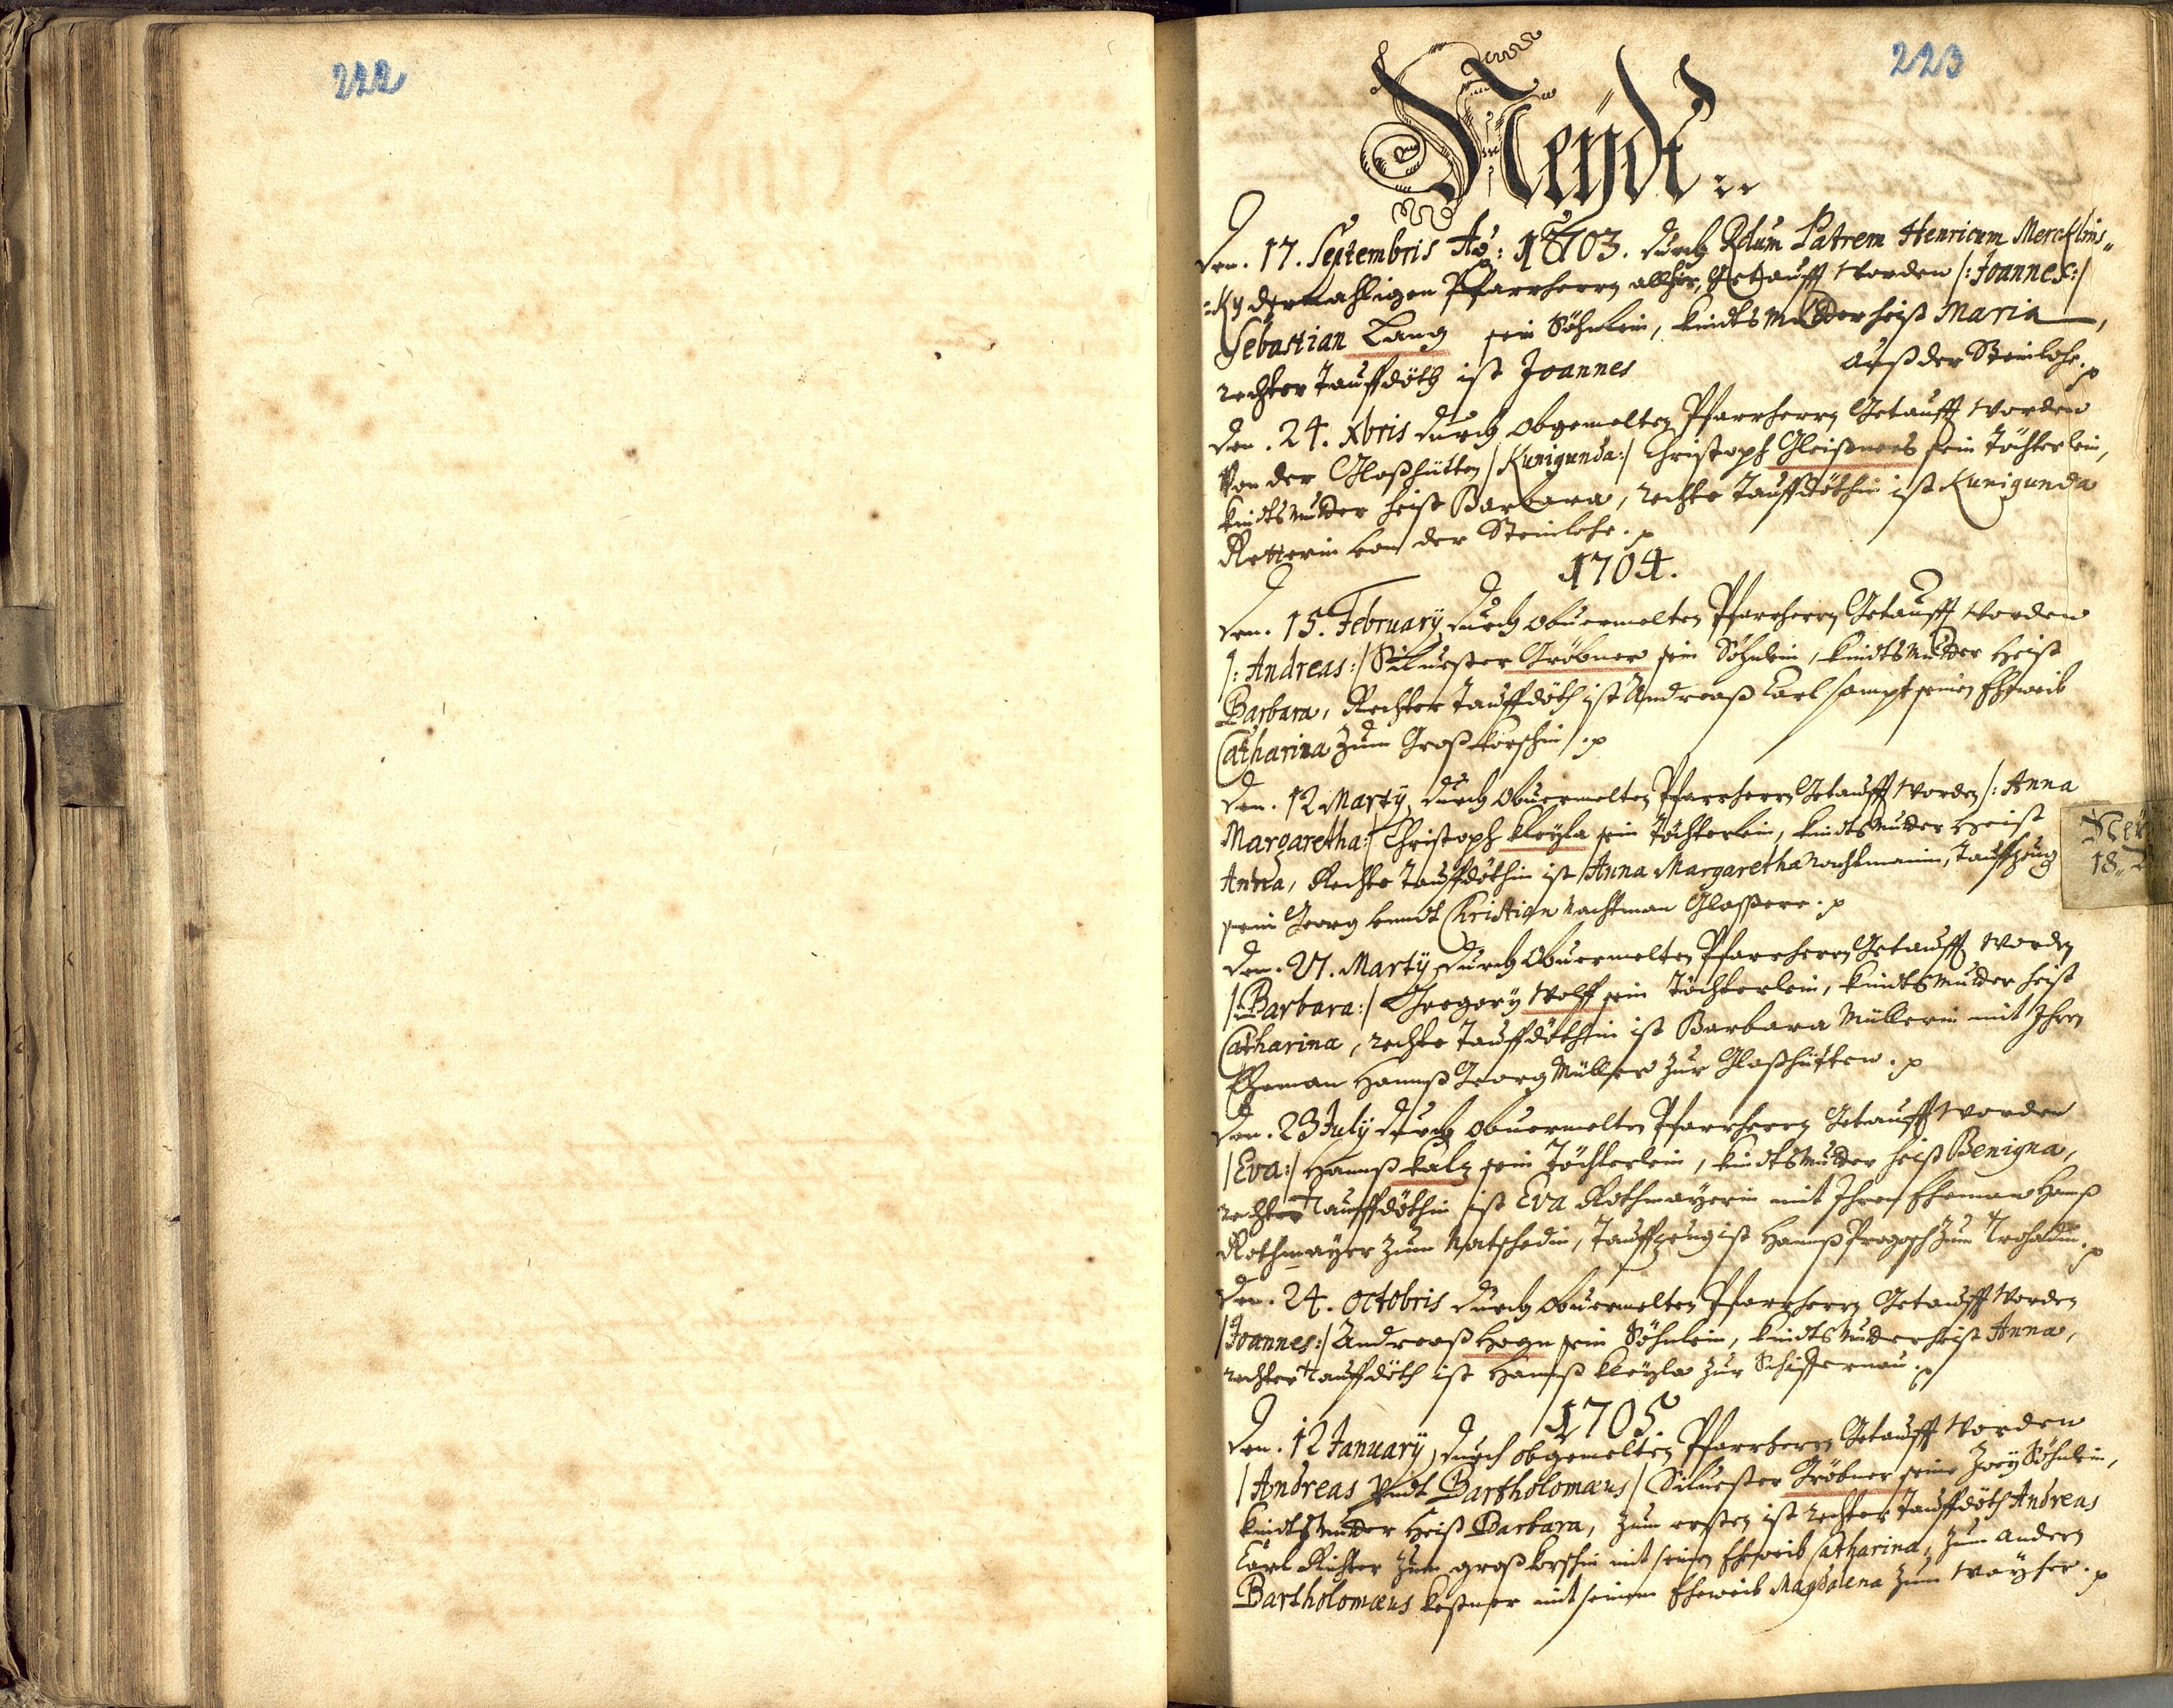 222
223
Neÿdt
Den. 17. Septembris Aõ: 1703. durch Rdum Patrem Henricum Mercklins„
=Ky dermahligen Pfarrherrn allhir, Getaufft worden /: Joannes:/
Sebastian Lang sein Söhnlein, kindts Mutter heist Maria,
rechter Tauffdöth ist Joannes auß der Steinlohe. p
den. 24. Xbris durch obgemelten Pfarrherrn Getaufft worden
Von der Glaßhütten /Kunigunda:/ Christoph Gleißners sein Töchterlein,
kindtsMutter heist Barbara, rechte Tauffdöthin ist Kunigunda
von der Steinlohe. p
1704.
Den. 15. February durch obuermelten Pfarrherrn Getaufft worden
/: Andreas:/ Siluester Gröbner sein Söhnlein, kindtsMutter heist
Barbara, Rechter Tauffdöth ist Andreaß Carl sampt seinen Eheweib
Catharina zum Großkorschin. p
Den. 12 Martÿ durch Obuermelten Pfarrherrn Getaufft worden /: Anna
Margaretha:/ Christoph Kleÿla sein Töchterlein, kindtsMutter heist
Anna, Rechte Tauffdöthin ist Anna Margaretha Nachtmanin, Tauffzeug
sein Georg Christian Nachtman Glaßere. p
Den. 27. Martÿ durch Obuermelten Pfarrherrn Getaufft worden
/:Barbara:/ Gregorÿ Wolff sein Töchterlein, kindtsMutter heist
Catharina, rechte Tauffdöthin ist Barbara Müllerin mit Ihren
Eheman Hannß Georg Müller zur Glaßhütten. p
Den. 23 Julÿ durch obuermelten Pfarrherrn Getaufft worden
/Eva:/ Hannß kalz sein Töchterlein, kindtsMutter heist Benigna,
rechte Tauffdöthin ist Eva Rothmaÿerin mit Ihren Eheman Hanß
Rothmaÿer zum Natschedin, Tauffzeug ist Hannß zum
Den. 24. Octobris durch obuermelten Pfarrherrn Getaufft worden
/Joannes:/ Andreaß Hogn sein Söhnlein, kindtsMutter heist Anna,
rechter Tauffdöth ist Hannß Kleÿla zur Schiffernau. p
1705
Den. 12 January durch obgemelten Pfarrherrn Getaufft worden
/Andreas Vndt Bartholomæus/ Siluester Gröbner seine Zweÿ Söhnlein,
kindtsMutter Heist Barbara, zum ersten ist rechter Tauffdöth Andreas
Carl Richter zum großkorschin mit seinen Eheweib Catharina, zum andern
Bartholomæus keßner mit seinem Eheweib Magdalena zum Waÿher. p
18„